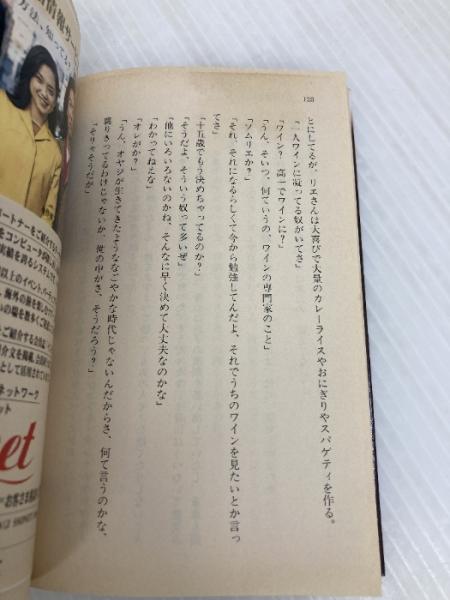 128
とにしてるが、リエさんは大喜びで大量のカレーライスやおにぎりやスパゲティを作る。
「一人ワインに凝ってる奴がいてさ」
「ワイン？ 高一でワインに？」
「うん、そいつ、何ていうの、ワインの専門家のこと」
「ソムリエか？」
「それ、それになるらしくて今から勉強してんだよ、それでうちのワインを見たいとか言っ
てさ」
「十五歳でもう決めちゃってるのか？」
「そうだよ、そういう奴って多いぜ」
「他にいろいろないのかね、そんなに早く決めて大丈夫なのかな」
「わかってねえな」
「オレがか？」
「うん、オヤジが生きてきたようななごやかな時代じゃないんだからさ、何て言うのかな、
限りきってるわけじゃないか、世の中がさ、そうだろう？」
「そりゃそうだが」
情報サー
方法、知ってる
ートナーをご紹介する
をコンピュータが
実績を誇るシステム
以上のイベントパーティ
、海外の旅を楽しむ
の場を数多くご
ご紹介する会
介文を掲載、会員
として活用されて
ネットワーク
ット
et